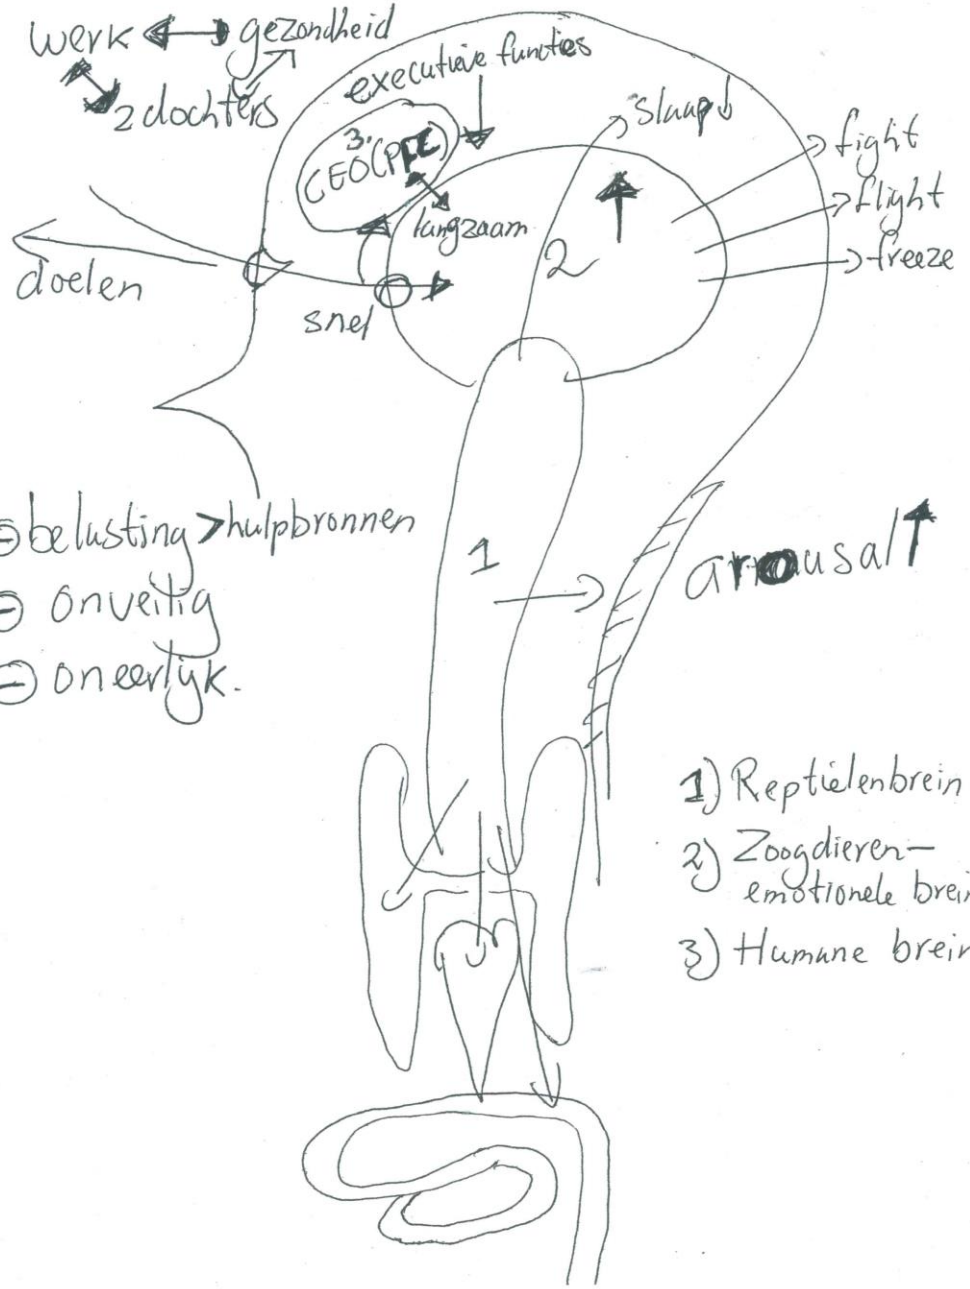 werk ↔ gezondheid
2 dochters
executieve functies
3.
CEO (PFC)
slaap ↓
fight
flight
freeze
langzaam
2
doelen
snel
⊖ belasting > hulpbronnen
⊖ onveilig
⊖ oneerlijk.
1
arousal ↑
1) Reptielenbrein
2) Zoogdieren-
emotionele brein
3) Humane brein